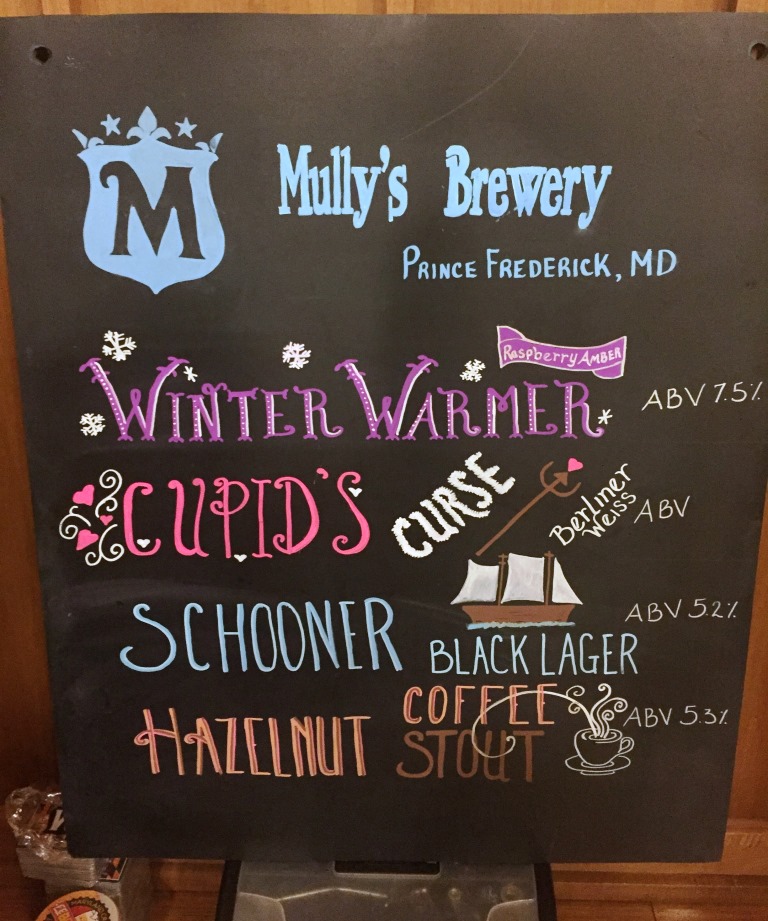 M
Mully's Brewery
PRINCE FREDERICK, MD
Raspberry AMBER
WINTER WARMER ABV 7.5%
CUPID'S CURSE Berliner Weiss ABV
SCHOONER BLACK LAGER ABV 5.2%
HAZELNUT COFFEE STOUT ABV 5.3%